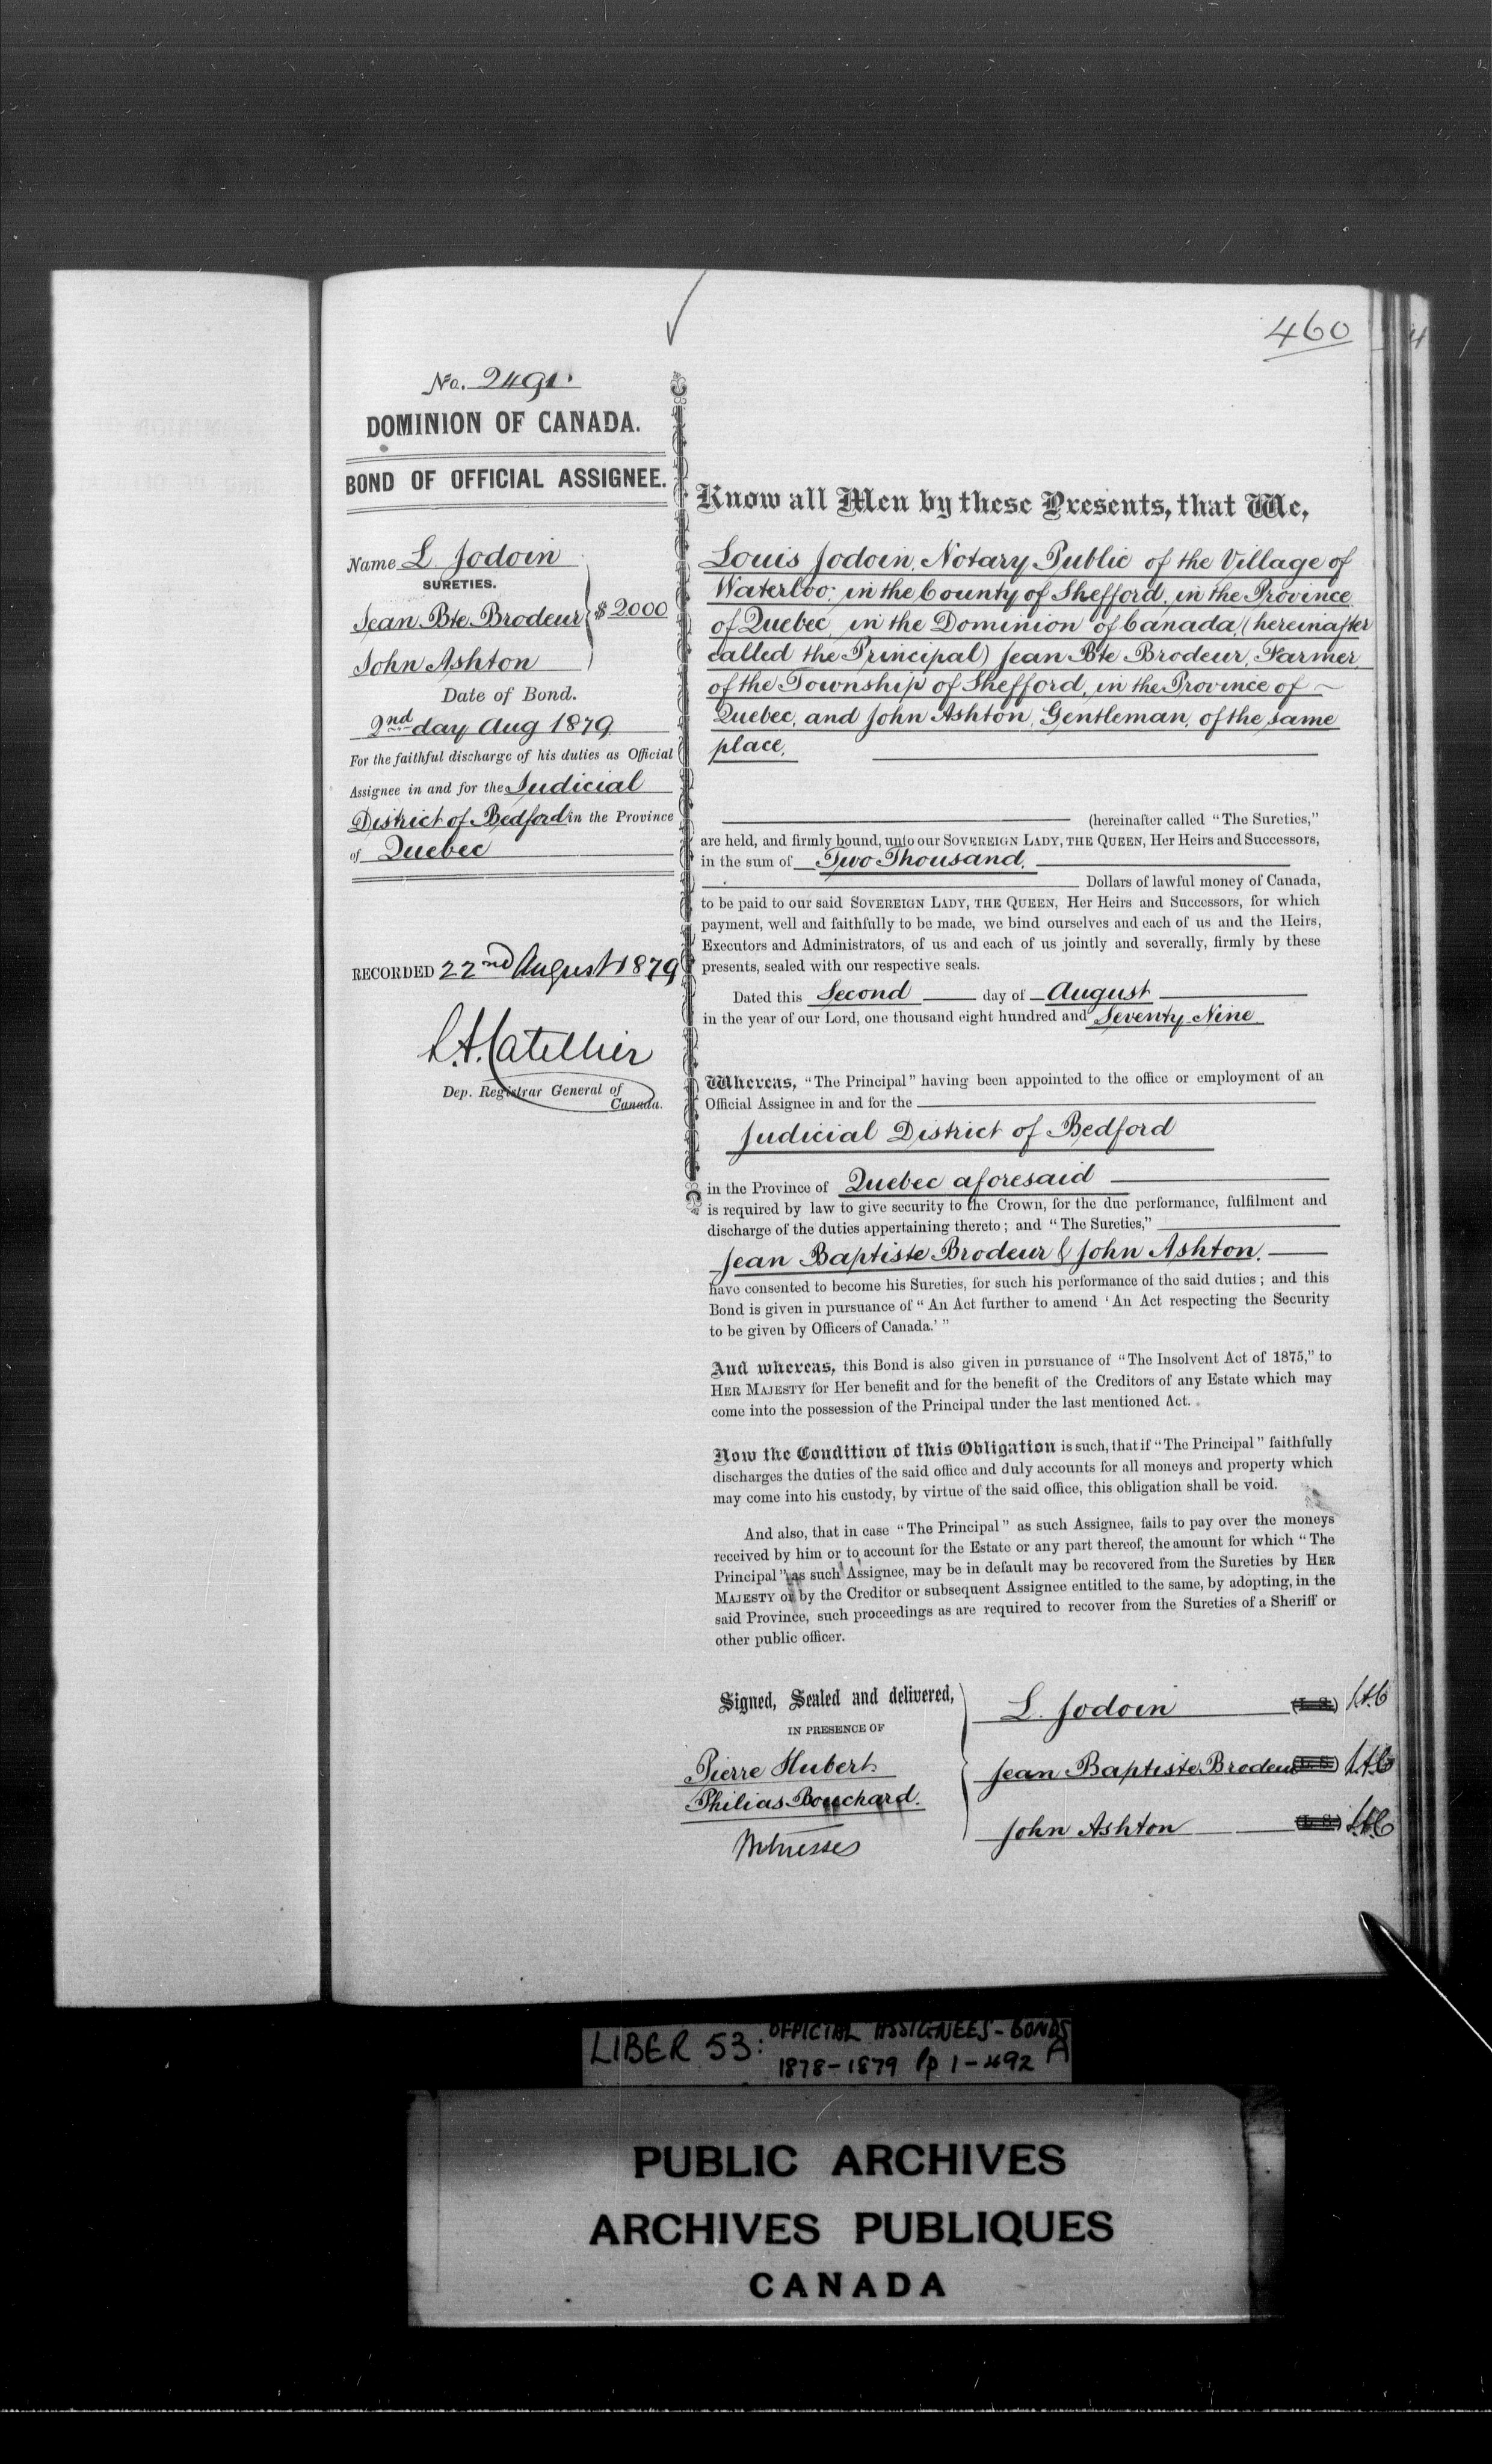 460
No. 2491.
DOMINION OF CANADA.
BOND OF OFFICIAL ASSIGNEE.
Name L Jodoin
SURETIES.
Jean Bte Brodeur } $ 2000
John Ashton
Date of Bond.
2nd day Aug 1879
For the faithful discharge of his duties as Official
Assignee in and for the Judicial
District of Bedford in the Province
of Quebec
RECORDED 22nd August 1879
L.A. Catellier
Dep. Registrar General of
Canada.
Know all Men by these Presents, that We,
Louis Jodoin, Notary Public of the Village of
Waterloo, in the County of Shefford, in the Province
of Quebec, in the Dominion of Canada, (hereinafter
called the Principal) Jean Bte Brodeur, Farmer,
of the Township of Shefford, in the Province of ~
Quebec, and John Ashton, Gentleman, of the same
place,
(hereinafter called "The Sureties,"
are held, and firmly bound, unto our SOVEREIGN LADY, THE QUEEN, Her Heirs and Successors,
in the sum of Two Thousand.
Dollars of lawful money of Canada,
to be paid to our said SOVEREIGN LADY, THE QUEEN, Her Heirs and Successors, for which
payment, well and faithfully to be made, we bind ourselves and each of us and the Heirs,
Executors and Administrators, of us and each of us jointly and severally, firmly by these
presents, sealed with our respective seals.
Dated this Second day of August
in the year of our Lord, one thousand eight hundred and Seventy Nine
Whereas, "The Principal" having been appointed to the office or employment of an
Official Assignee in and for the
Judicial District of Bedford
in the Province of Quebec aforesaid
is required by law to give security to the Crown, for the due performance, fulfilment and
discharge of the duties appertaining thereto; and "The Sureties,"
Jean Baptiste Brodeur & John Ashton,
have consented to become his Sureties, for such his performance of the said duties; and this
Bond is given in pursuance of "An Act further to amend 'An Act respecting the Security
to be given by Officers of Canada.'"
And whereas, this Bond is also given in pursuance of "The Insolvent Act of 1875," to
HER MAJESTY for Her benefit and for the benefit of the Creditors of any Estate which may
come into the possession of the Principal under the last mentioned Act.
Now the Condition of this Obligation is such, that if "The Principal" faithfully
discharges the duties of the said office and duly accounts for all moneys and property which
may come into his custody, by virtue of the said office, this obligation shall be void.
And also, that in case "The Principal" as such Assignee, fails to pay over the moneys
received by him or to account for the Estate or any part thereof, the amount for which "The
Principal" as such Assignee, may be in default may be recovered from the Sureties by HER
MAJESTY or by the Creditor or subsequent Assignee entitled to the same, by adopting, in the
said Province, such proceedings as are required to recover from the Sureties of a Sheriff or
other public officer.
Signed, Sealed and delivered,
IN PRESENCE OF
Pierre Hubert
Philias Bouchard.
Witnesses
L. Jodoin (L. S.) LAC
Jean Baptiste Brodeur (L. S.) LAC
John Ashton (L. S.) LAC
LIBER 53: OFFICIAL ASSIGNEES - BONDS
1878-1879 pp 1-492 A
PUBLIC ARCHIVES
ARCHIVES PUBLIQUES
CANADA